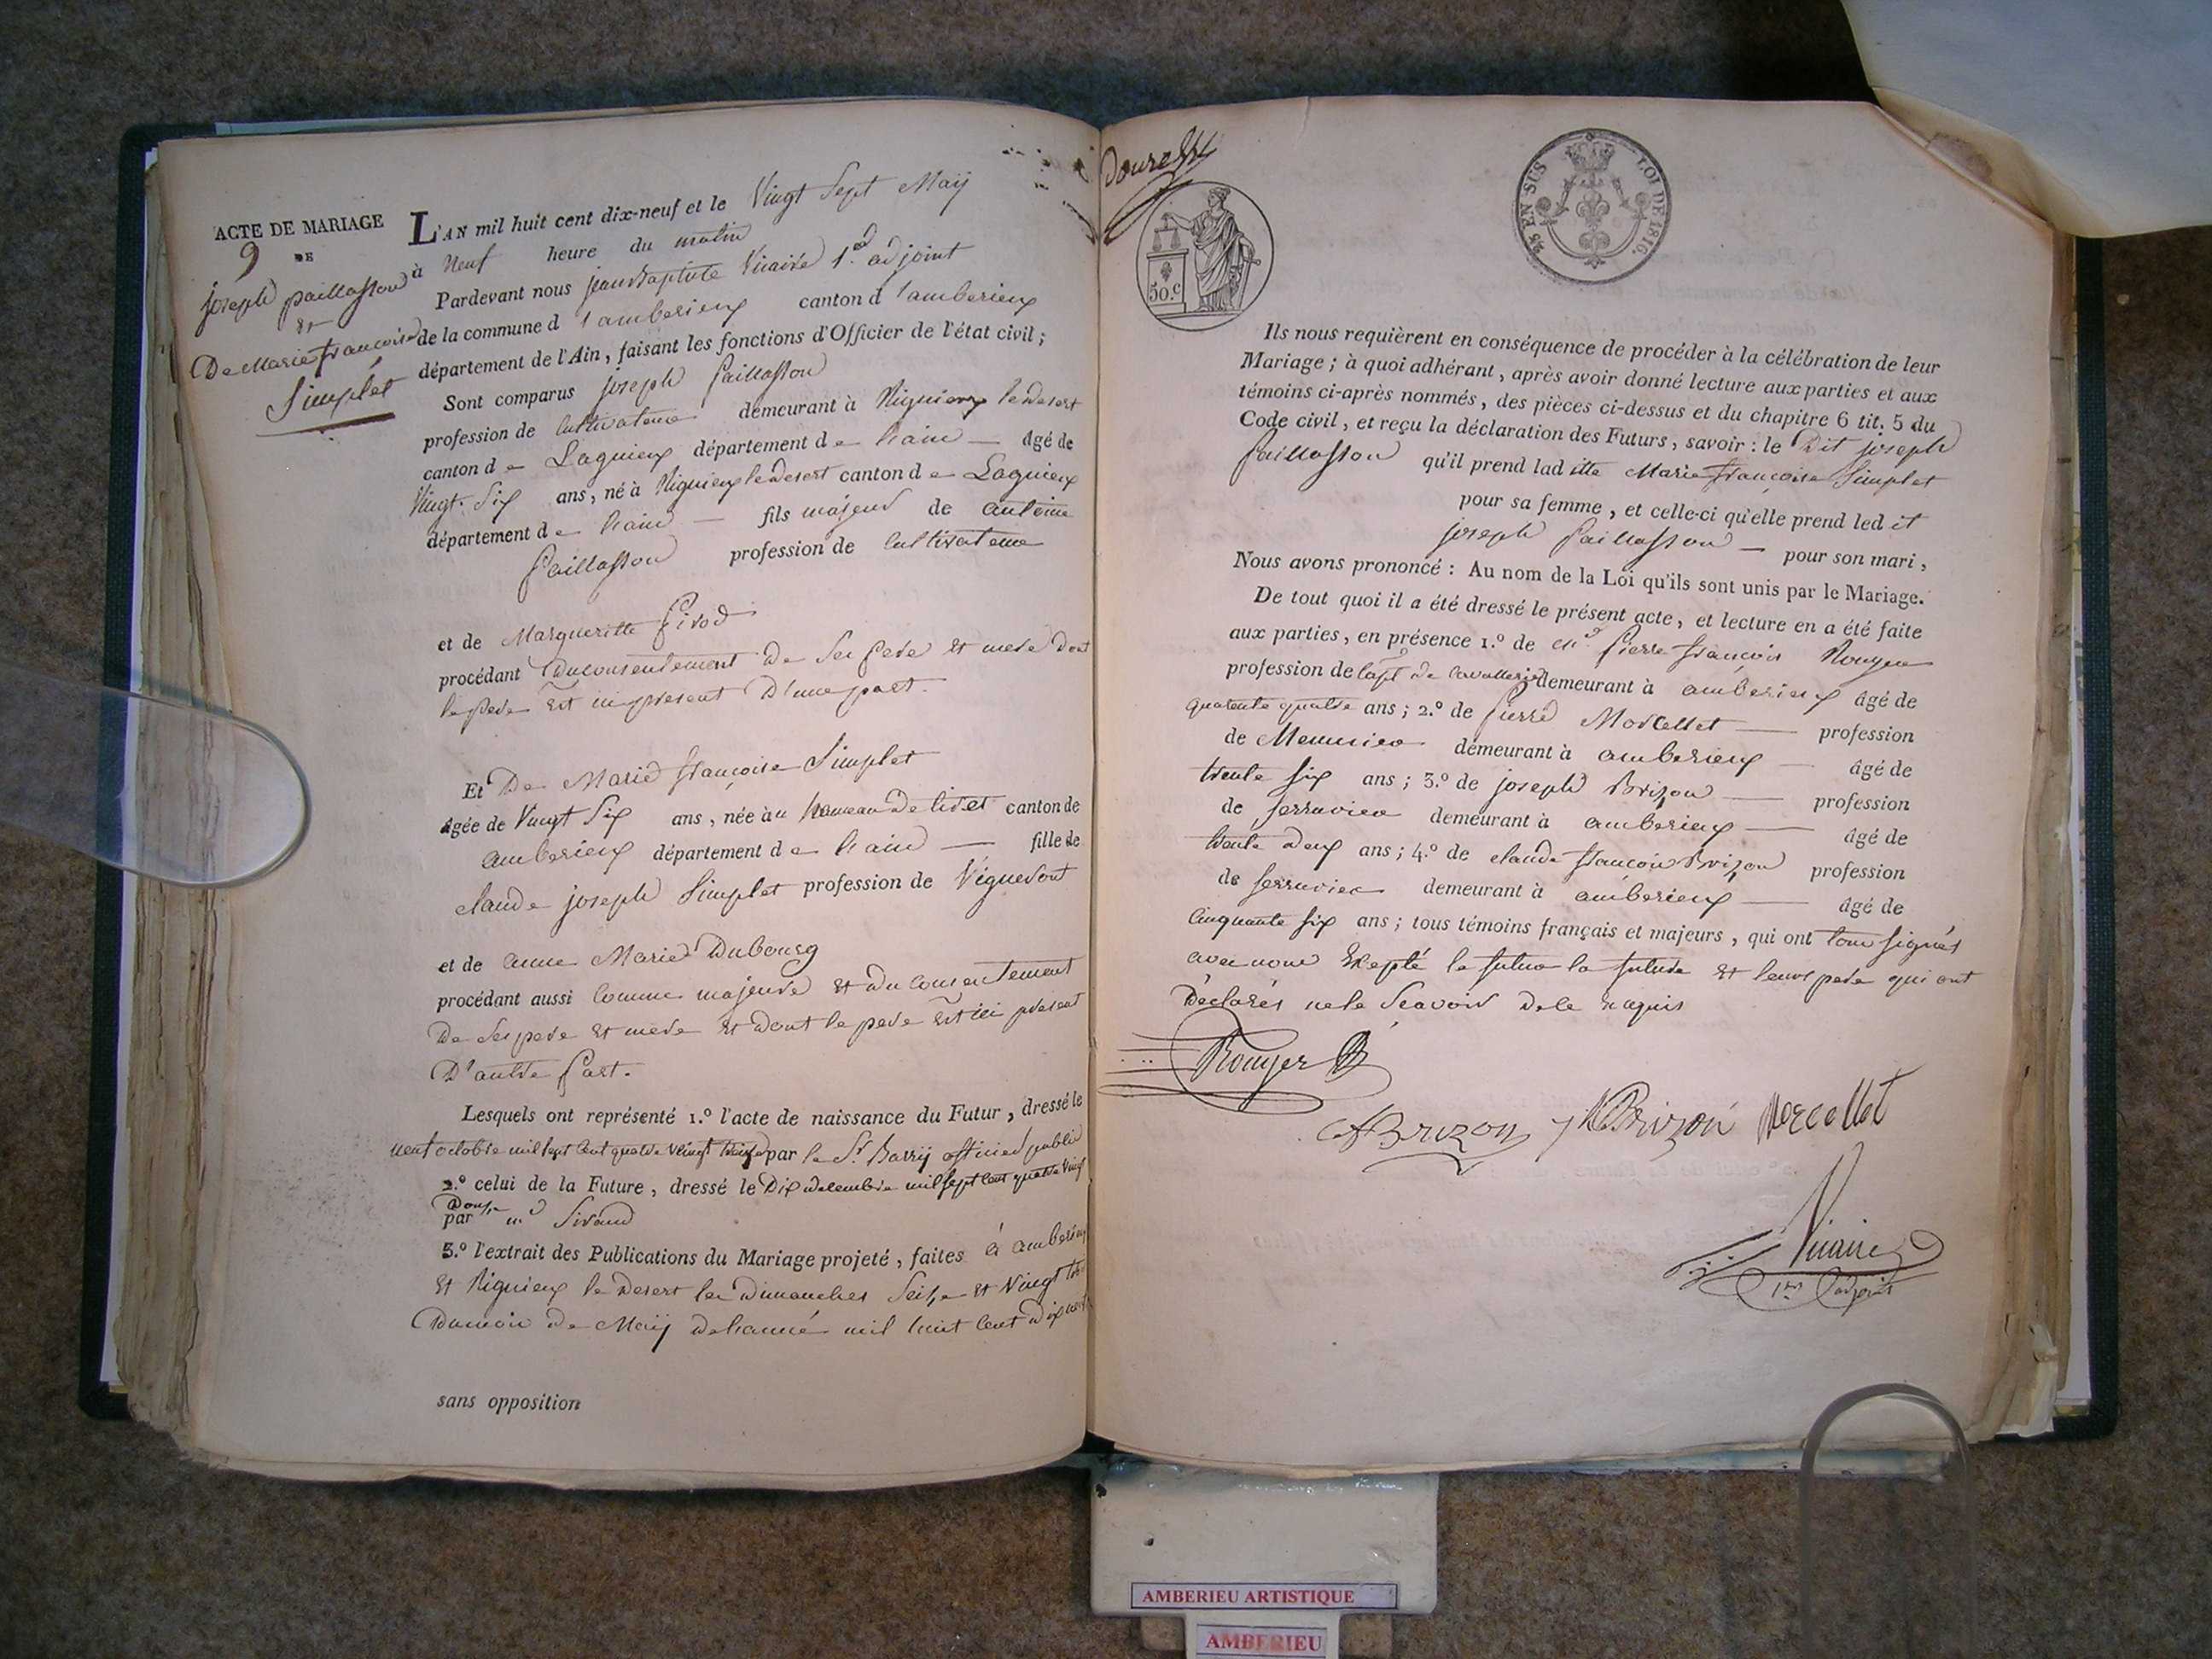 ACTE DE MARIAGE
9 DE
joseph paillasson
et
De Marie francoise
Simplet
L'AN mil huit cent dix-neuf et le Vingt Sept Maÿ
à Neuf heure du matin
Pardevant nous jean baptiste Vicaire 1er adjoint
de la commune d'amberieux canton d'amberieux
département de l'Ain, faisant les fonctions d'Officier de l'état civil;
Sont comparus joseph Paillasson
profession de Cultivateur demeurant à Rignieux le desert
canton de Lagnieux département de Lain — âgé de
Vingt-Six ans, né à Rignieux le desert canton de Lagnieux
département de Lain — fils majeur de antoine
Paillasson profession de Cultivateur
et de Margueritte Pirod
procédant Du consentement De Ses pere et mere Dont
le pere Est ici present D'une part.
Et De Marie françoise Simplet
âgée de Vingt Six ans, née au hameau De tiret canton de
amberieux département de Lain — fille de
claude joseph Simplet profession de Vigneront
et de anne Marie Dubourg
procédant aussi Comme majeure et du Consentement
De Ses pere et mere et Dont le pere Est ici present
D'autre Part.
Lesquels ont représenté 1.º l'acte de naissance du Futur, dressé le
neuf octobre mil sept Cent quatre Vingt treize par le Sr Barrÿ officier public
2.º celui de la Future, dressé le Dix decembre mil sept Cent quatre Vingt
Douze
par mr Sirand
3.º l'extrait des Publications du Mariage projeté, faites à amberieux
et Rignieux le Desert les Dimanches Seize et Vingt trois
Du mois de Maÿ de Lannée mil huit Cent Dix neuf
sans opposition
50.c
25 EN SUS LOI DE 1816.
Ils nous requièrent en conséquence de procéder à la célébration de leur
Mariage; à quoi adhérant, après avoir donné lecture aux parties et aux
témoins ci-après nommés, des pièces ci-dessus et du chapitre 6 tit. 5 du
Code civil, et reçu la déclaration des Futurs, savoir: le Dit joseph
Paillasson qu'il prend laditte Marie françoise Simplet
pour sa femme, et celle-ci qu'elle prend ledit
joseph Paillasson — pour son mari,
Nous avons prononcé: Au nom de la Loi qu'ils sont unis par le Mariage.
De tout quoi il a été dressé le présent acte, et lecture en a été faite
aux parties, en présence 1.º de mr Pierre françois Rouyer
profession de Capt de Cavallerie demeurant à amberieux âgé de
quarente quatre ans; 2.º de Pierre Morcellet — profession
de Menusier demeurant à amberieux — âgé de
trente six ans; 3.º de joseph Brizon — profession
de serrurier demeurant à amberieux — âgé de
trente deux ans; 4.º de claude françois Brizon profession
de serrurier demeurant à amberieux — âgé de
Cinquante six ans; tous témoins français et majeurs, qui ont tous signés
avec nous Excepté le futur la future et leurs pere qui ont
Déclarés ne le Scavoir De le requis
Rouyer
Brizon jh Brizon Morcellet
Vicaire
1er adjoint
AMBERIEU ARTISTIQUE
AMBERIEU